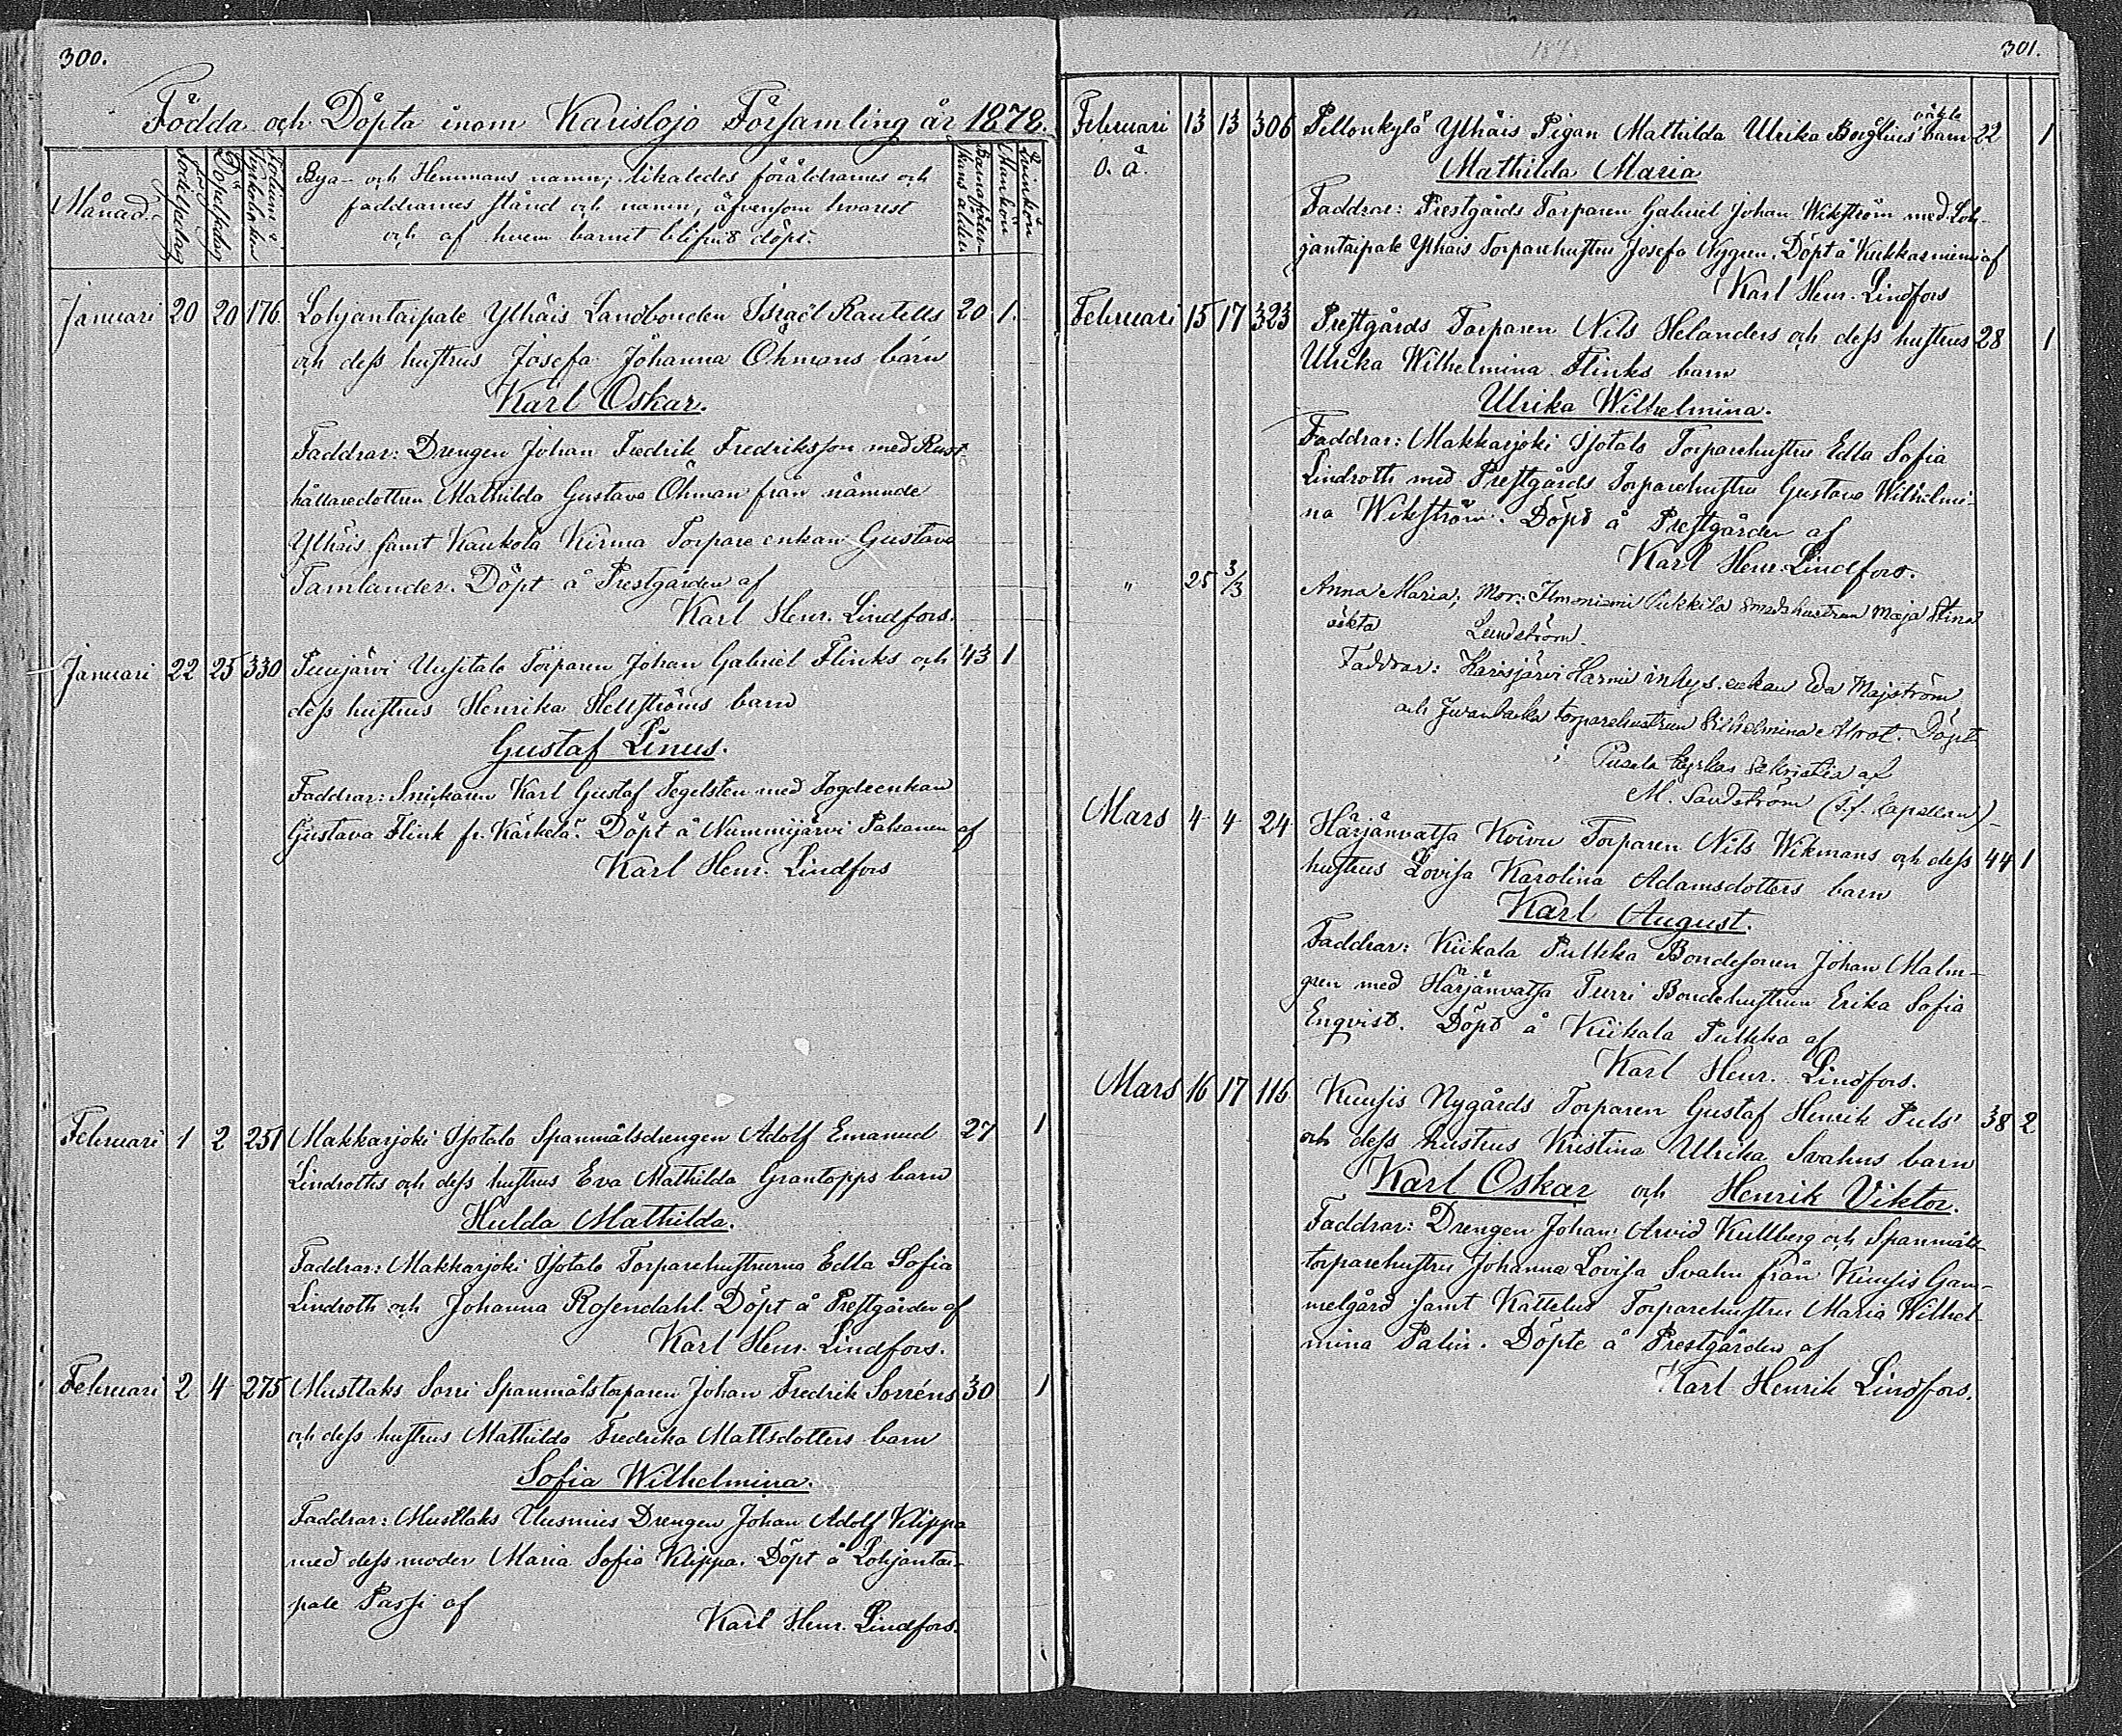 300.
Födda och Döpta inom Karislojo Församling år 1878.
Månad.
Födelsedag
Döpelsedag
Folium i Kyrkoboken
Bya- och Hemmans namn; likaledes föräldrarnes och
faddrarnes stånd och namn, äfvensom hvarest
och af hvem barnet blifvit döpt.
Barnaföderskans ålder
Mankön
Qvinkön
Januari 20 20 176 Lohjantaipale Ylhäis Landbonden Israël Rautells 20 1.
och dess hustrus Josefa Johanna Öhmans barn
Karl Oskar.
Faddrar: Drengen Johan Fredrik Fredriksson med Rust-
hållaredottren Mathilda Gustava Öhman från nämnde
Ylhäis samt Kaukola Kirma Torpare enkan Gustava
Tamlander. Döpt å Prestgården af
Karl Henr. Lindfors.
Januari 22 25 330 Puujärvi Uusitalo Torparen Johan Gabriel Flinks och 43 1
dess hustrus Henrika Hellströms barn
Gustaf Linus.
Faddrar: Snickaren Karl Gustaf Tegelsten med Fogdeenkan
Gustava Flink fr. Kärkelä. Döpt å Nummijärvi Pakanen af
Karl Henr. Lindfors
Februari 1 2 251 Makkarjoki Isotalo Spanmålsdrengen Adolf Emanuel 27 1
Lindroths och dess hustrus Eva Mathilda Grantopps barn
Hulda Mathilda.
Faddrar: Makkarjoki Isotalo Torparehustrurna Edla Sofia
Lindroth och Johanna Rosendahl. Döpt å Prestgården af
Karl Henr. Lindfors.
Februari 2 4 275 Mustlaks Sorri Spanmålstorparen Johan Fredrik Sorréns 30 1
och dess hustrus Mathilda Fredrika Mattsdotters barn
Sofia Wilhelmina.
Faddrar: Mustlaks Uusmies Drengen Johan Adolf Klippa
med dess moder Maria Sofia Klippa. Döpt å Lohjantai-
pale Passi af
Karl Henr. Lindfors.
1878
301.
Februari 13 13 306 Pellonkylä Ylhäis Pigan Mathilda Ulrika Borglins oäkta barn 22 1
o. ä.
Mathilda Maria
Faddrar: Prestgårds Torparen Gabriel Johan Wikström med Loh-
jantaipale Ylhäis Torparehustru Josefa Nygren. Döpt å Kukkasniemi af
Karl Henr. Lindfors
Februari 15 17 323 Prestgårds Torparen Nils Helanders och dess hustrus 28 1
Ulrika Wilhelmina Flinks barn
Ulrika Wilhelmina.
Faddrar: Makkarjoki Isotalo Torparehustru Edla Sofia
Lindroth med Prestgårds Torparehustru Gustava Wilhelmi-
na Wikström. Döpt å Prestgården af
Karl Henr. Lindfors.
" 25 3/3 Anna Maria; Mor: Ilmoniemi Pukkila smedshustrun Maja Stina
äkta Lundström.
Faddrar: Karisjärvi Harme inhys. enkan Eva Majström
och torparehustrun Vilhelmina Döpt
i Pusula kyrkas sakristia af
M. Sandström (t.f. Capellan)
Mars 4 4 24 Härjänvatsa Koivu Torparen Nils Wikmans och dess 44 1
hustrus Lovisa Karolina Adamsdotters barn
Karl August.
Faddrar: Kiikala Pulkka Bondesonen Johan Malm-
gren med Härjänvatsa Turri Bondehustrun Erika Sofia
Enqvist. Döpt å Kiikala Pulkka af
Karl Henr. Lindfors.
Mars 16 17 116 Kuusis Nygårds Torparen Gustaf Henrik Puls' 38 2
och dess hustrus Kristina Ulrika Svahns barn
Karl Oskar och Henrik Viktor.
Faddrar: Drengen Johan Arvid Kullberg och Spanmåls-
torparehustru Johanna Lovisa Svahn från Kuusis Gam-
melgård samt Kattelus Torparehustru Maria Wilhel-
mina Palin. Döpte å Prestgården af
Karl Henrik Lindfors.